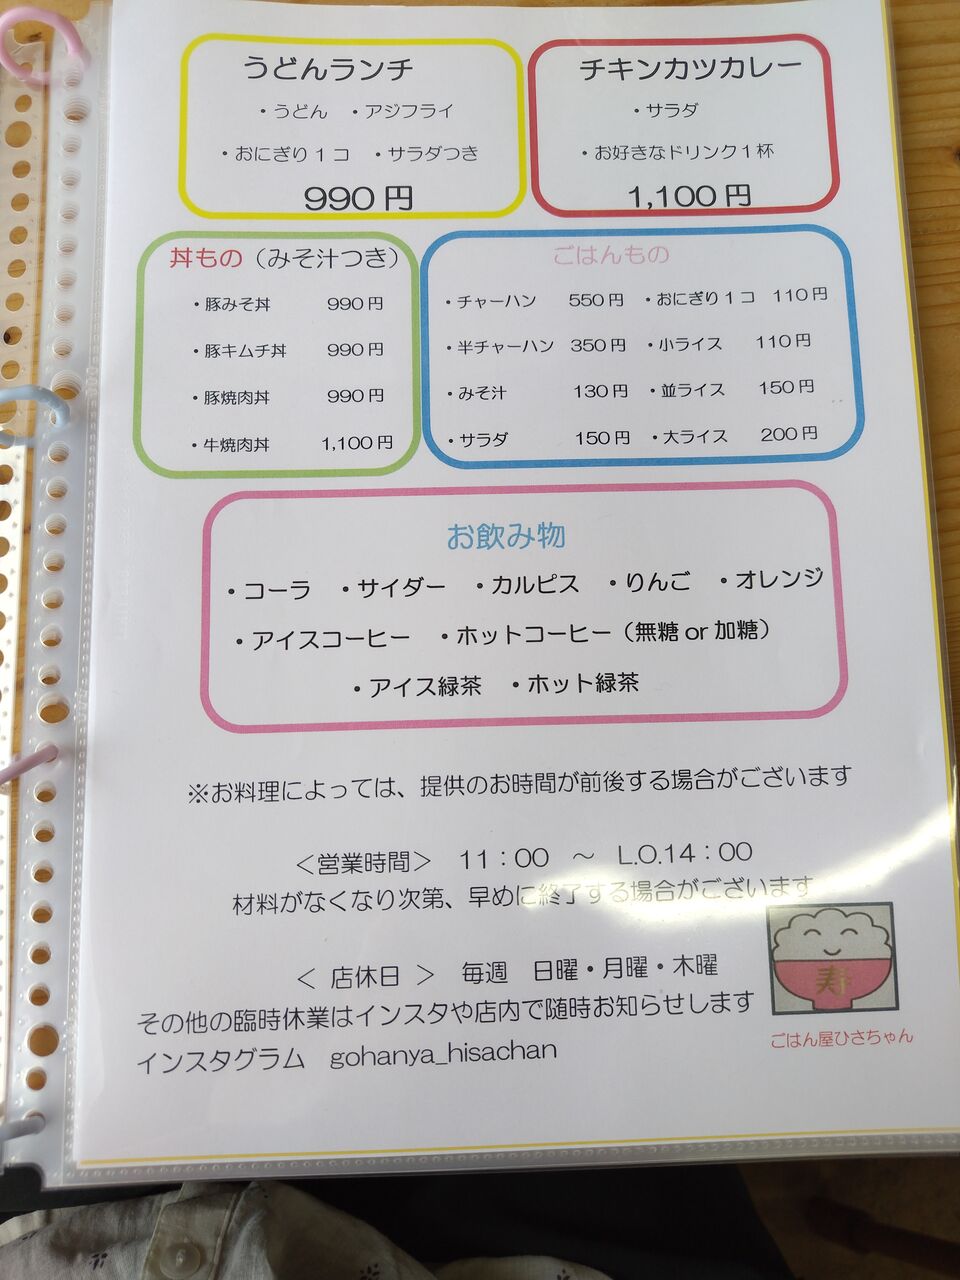 うどんランチ
・うどん ・アジフライ
・おにぎり1コ ・サラダつき
990円
チキンカツカレー
・サラダ
・お好きなドリンク1杯
1,100円
丼もの（みそ汁つき）
・豚みそ丼 990円
・豚キムチ丼 990円
・豚焼肉丼 990円
・牛焼肉丼 1,100円
ごはんもの
・チャーハン 550円 ・おにぎり1コ 110円
・半チャーハン 350円 ・小ライス 110円
・みそ汁 130円 ・並ライス 150円
・サラダ 150円 ・大ライス 200円
お飲み物
・コーラ ・サイダー ・カルピス ・りんご ・オレンジ
・アイスコーヒー ・ホットコーヒー（無糖or加糖）
・アイス緑茶 ・ホット緑茶
※お料理によっては、提供のお時間が前後する場合がございます
＜営業時間＞ 11：00 ～ L.O.14：00
材料がなくなり次第、早めに終了する場合がございます
＜ 店休日 ＞ 毎週 日曜・月曜・木曜
その他の臨時休業はインスタや店内で随時お知らせします
インスタグラム gohanya_hisachan
寿
ごはん屋ひさちゃん